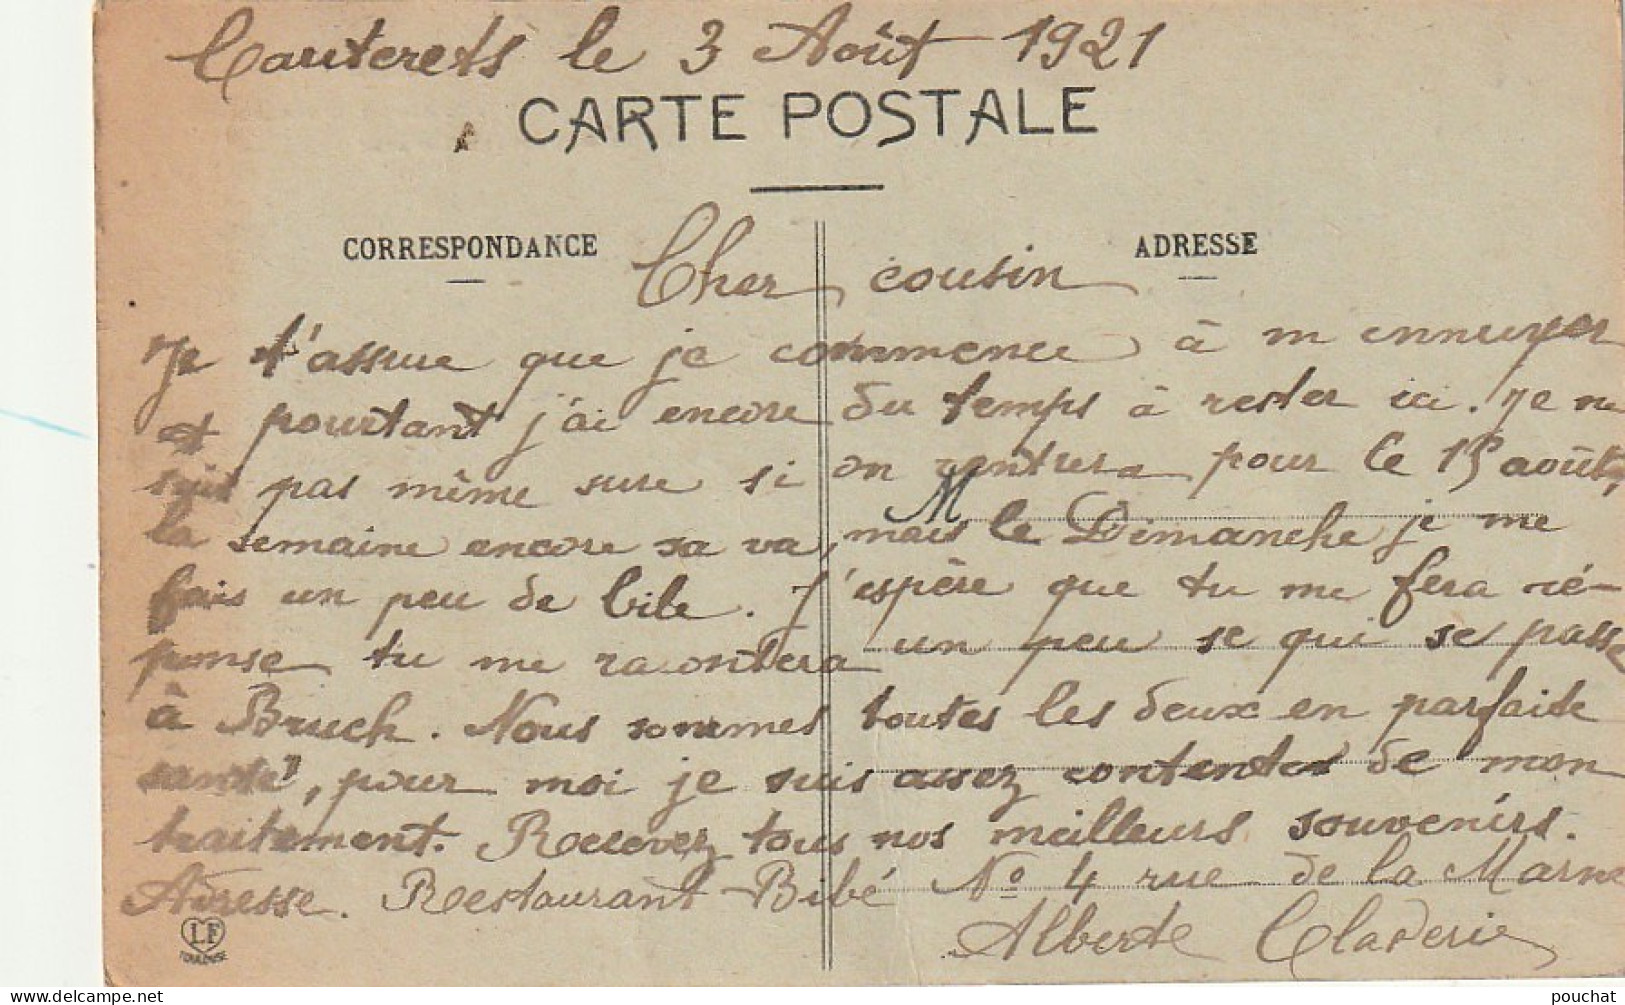 Cauterets le 3 Août 1921
CARTE POSTALE
CORRESPONDANCE
ADRESSE
Cher cousin
Je t'assure que je commence à m ennuyer
et pourtant j'ai encore du temps à rester ici. Je ne
suis pas même sure si on rentrera pour le 15 août,
la semaine encore sa va, mais le Dimanche je me
fais un peu de bile. J'espère que tu me fera ré-
ponse tu me racontera un peu se qui se passe
à Bruch. Nous sommes toutes les deux en parfaite
santé, pour moi je suis assez contente de mon
traitement. Recevez tous nos meilleurs souvenirs.
Adresse. Restaurant Bibé No 4 rue de la Marne
Alberte Claverie
LF
TOULOUSE
pouchat